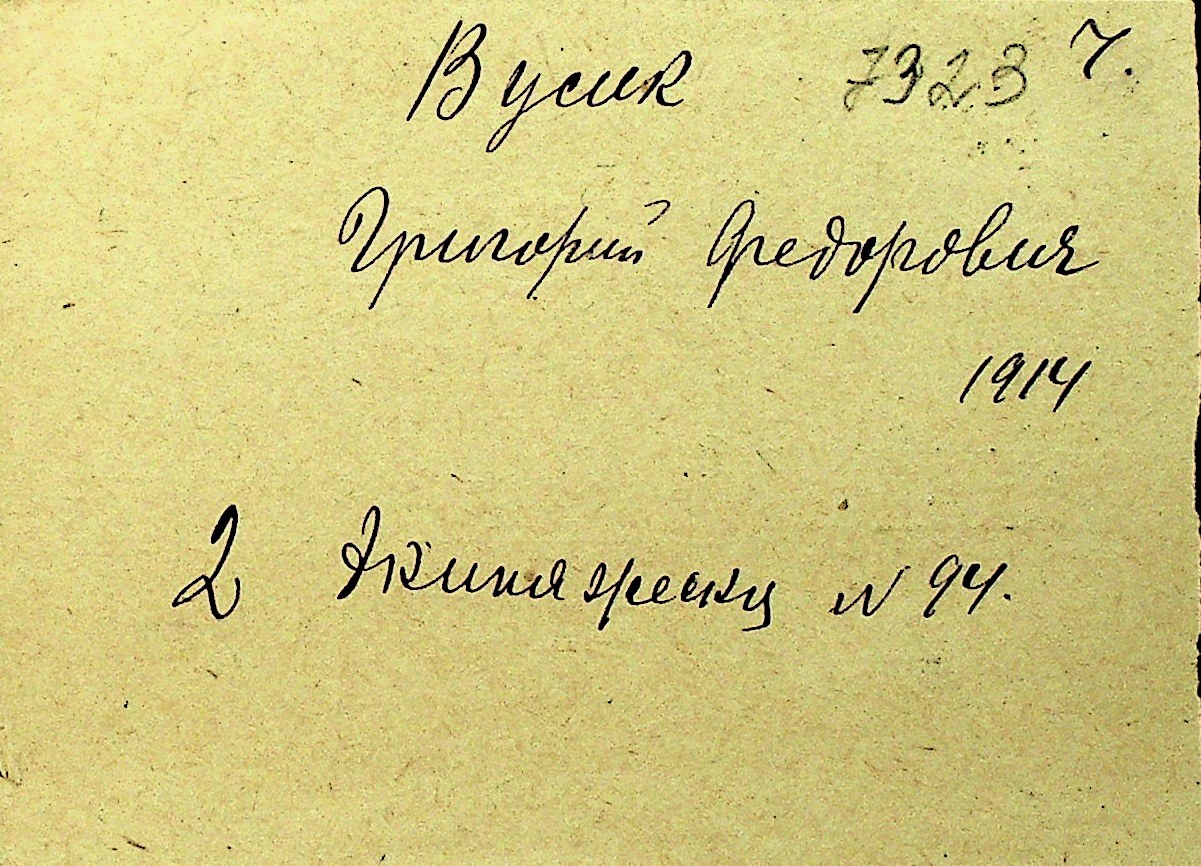 Вусик 7323 7.
Григорий Федорович
1914
2 № 94.